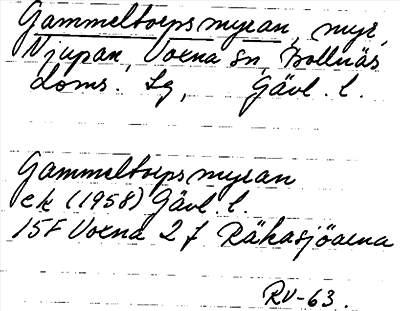 Gammeltorpsmyran, myr,
Njupan, Voxna sn, Bollnäs
doms. lg, Gävl. l.
Gammeltorpsmyran
ek (1958) Gävl. l.
15F Voxna 2 f Rähasjöarna
RV-63.